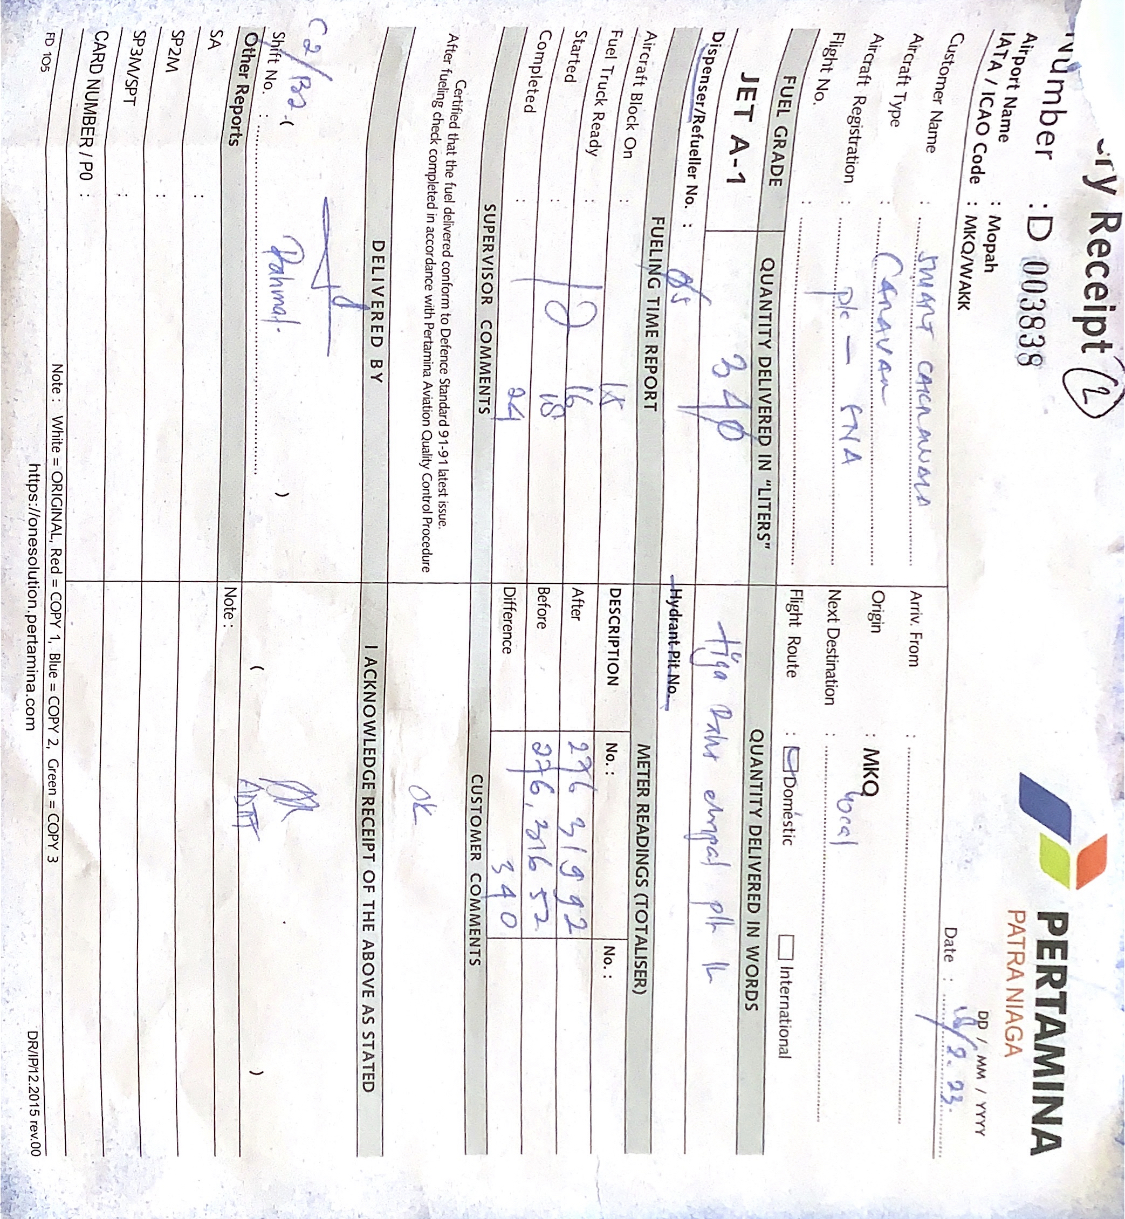 ry Receipt (2)
Number : D 003838
Airport Name : Mopah
IATA / ICAO Code : MKQ/WAKK
PERTAMINA
PATRA NIAGA
DD / MM / YYYY
Date :
Customer Name : SMART CAKRAWALA
Aircraft Type : CARAVAN
Aircraft Registration : PK - SNA
Flight No. :
Arriv. From :
Origin : MKQ
Next Destination : Local
Flight Route : Domestic International
FUEL GRADE
QUANTITY DELIVERED IN "LITERS"
QUANTITY DELIVERED IN WORDS
JET A-1
340
tiga Ratus empat plh Lt
Dispenser/Refueller No. :
Hydrant Pit No.
FUELING TIME REPORT
METER READINGS (TOTALISER)
Aircraft Block On :
Fuel Truck Ready :
Started : 18
Completed : 24
DESCRIPTION No. : No. :
After 276 319 92
Before 276,316 52
Difference 340
SUPERVISOR COMMENTS
CUSTOMER COMMENTS
Certified that the fuel delivered conform to Defence Standard 91-91 latest issue.
After fueling check completed in accordance with Pertamina Aviation Quality Control Procedure
OK
DELIVERED BY
I ACKNOWLEDGE RECEIPT OF THE ABOVE AS STATED
( Rahmat. )
( )
Shift No. :
Other Reports
Note :
SA :
SP2M :
SP3M/SPT :
CARD NUMBER / PO :
FD 105
Note : White = ORIGINAL, Red = COPY 1, Blue = COPY 2, Green = COPY 3
https://onesolution.pertamina.com
DR/IP/12.2015 rev.00